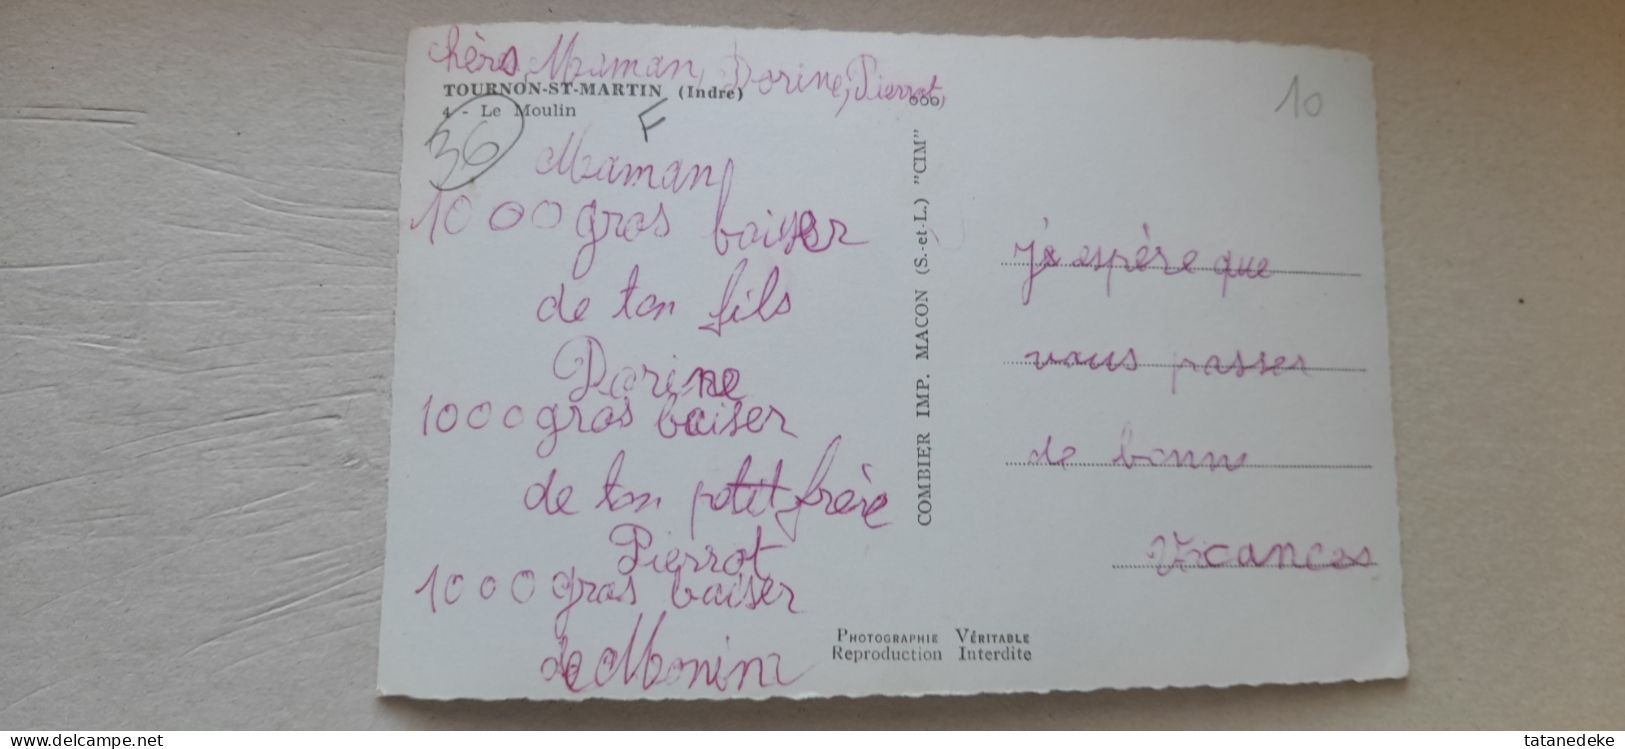 chères Maman, Dorine, Pierrot,
TOURNON-ST-MARTIN (Indre)
4 - Le Moulin
36
F
10
Maman
1000 gros baiser
de ton fils
Dorine
1000 gros baiser
de ton petit frère
Pierrot
1000 gros baiser
de Monine
COMBIER IMP. MACON (S.-et-L.) "CIM"
j'espère que
vous passer
de bonne
vacances
PHOTOGRAPHIE VÉRITABLE
Reproduction Interdite
www.delcampe.net
tatanedeke